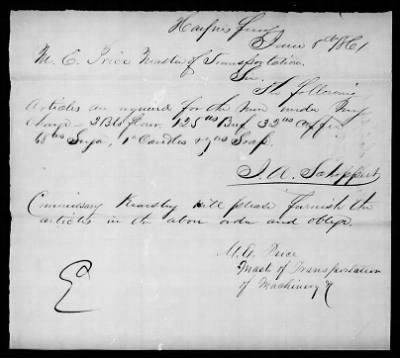 Harpers Ferry
June 8th 1861
M. C. Price Master of Transportation
Sir
The following
Articles are required for the Men under my
charge - 2 Bls flour, 125 lbs Beef 32 lbs Coffee
65 lbs Sugar, 10 Candles & 9 lbs Soap.
J. A. Schippert
Commissary Kearsley will please furnish the
articles in the above order and oblige
M. C. Price
Mast of Transportation
of Machinery &